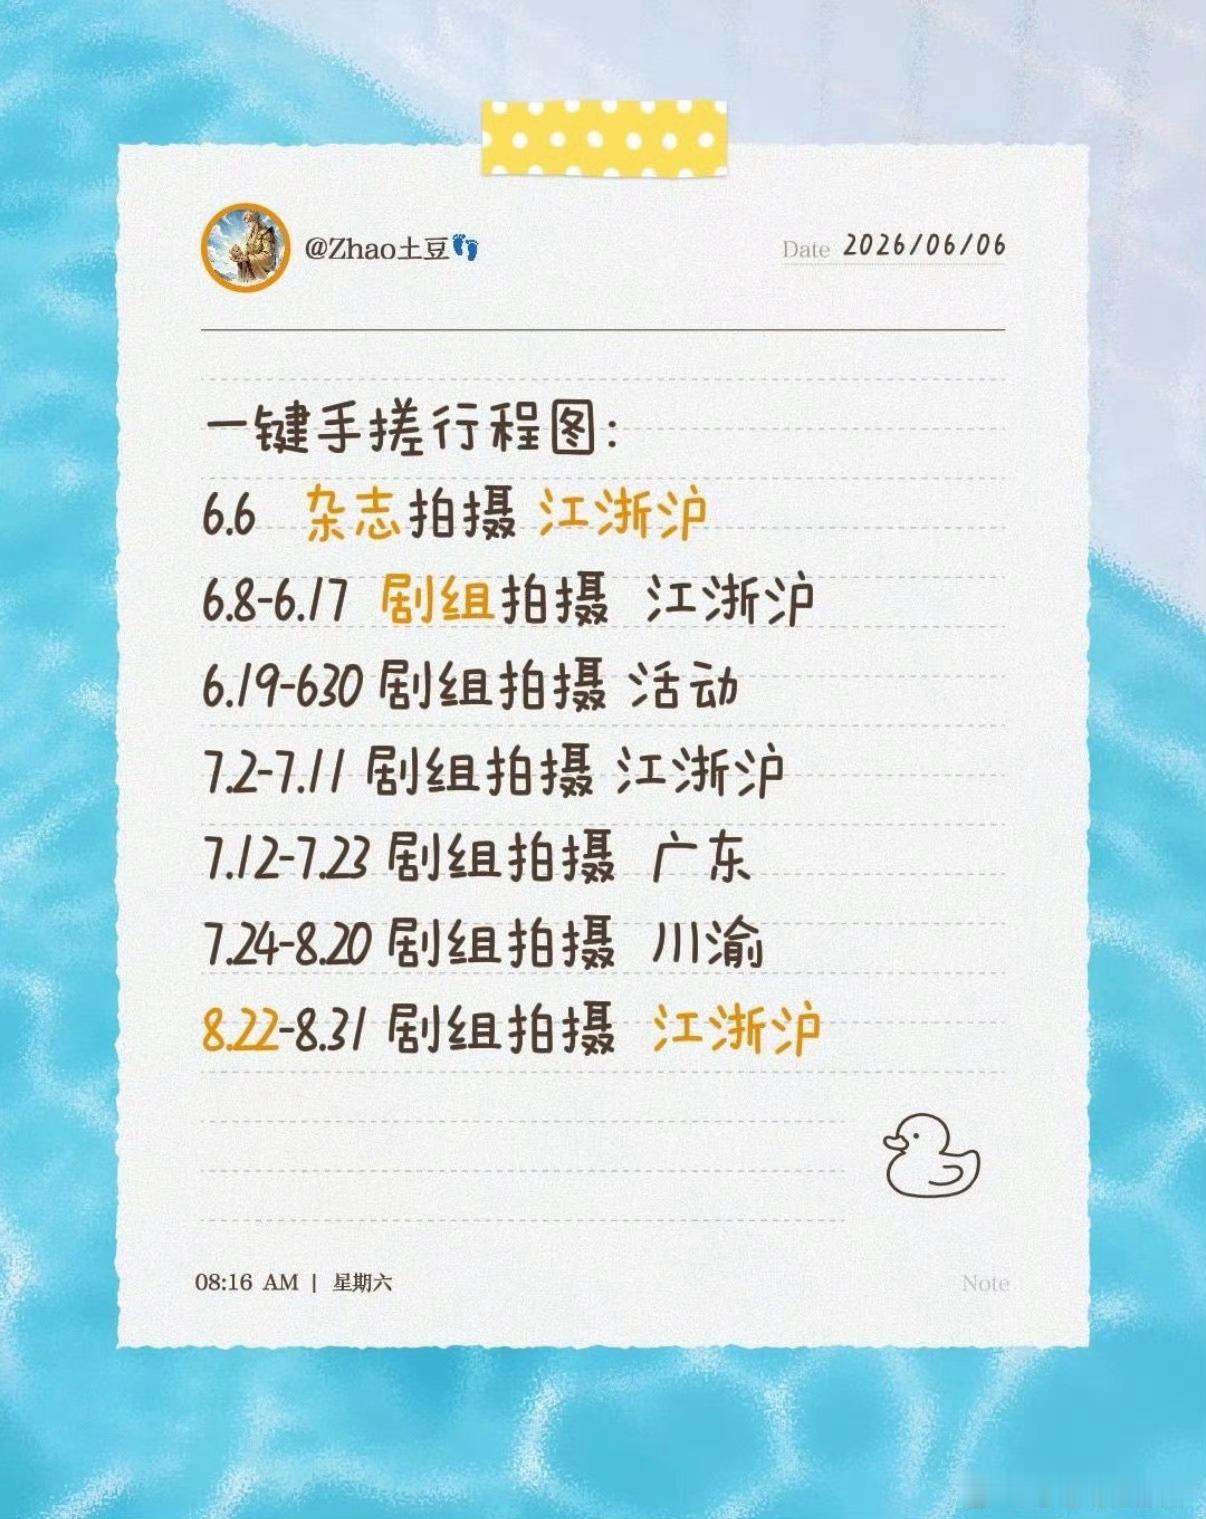 @Zhao土豆👣
Date 2026/06/06
一键手搓行程图:
6.6 杂志拍摄 江浙沪
6.8-6.17 剧组拍摄 江浙沪
6.19-630 剧组拍摄 活动
7.2-7.11 剧组拍摄 江浙沪
7.12-7.23 剧组拍摄 广东
7.24-8.20 剧组拍摄 川渝
8.22-8.31 剧组拍摄 江浙沪
08:16 AM | 星期六
Note